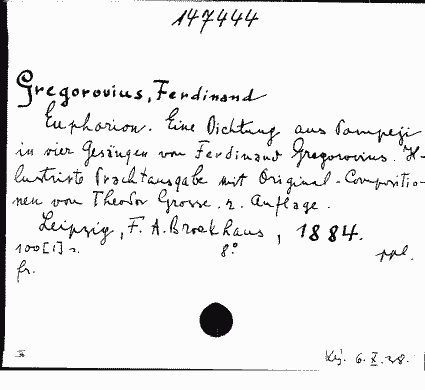 147444
Gregorovius, Ferdinand
Euphorion. Eine Dichtung aus Pompeji
in vier Gesängen von Ferdinand Gregorovius. Il-
lustrirte Prachtausgabe mit Original-Compositio-
nen von Theodor Grosse. 2. Auflage.
Leipzig, F. A. Brockhaus, 1884.
100 [1] S. 8° ppl.
fr.
6. X. 38.